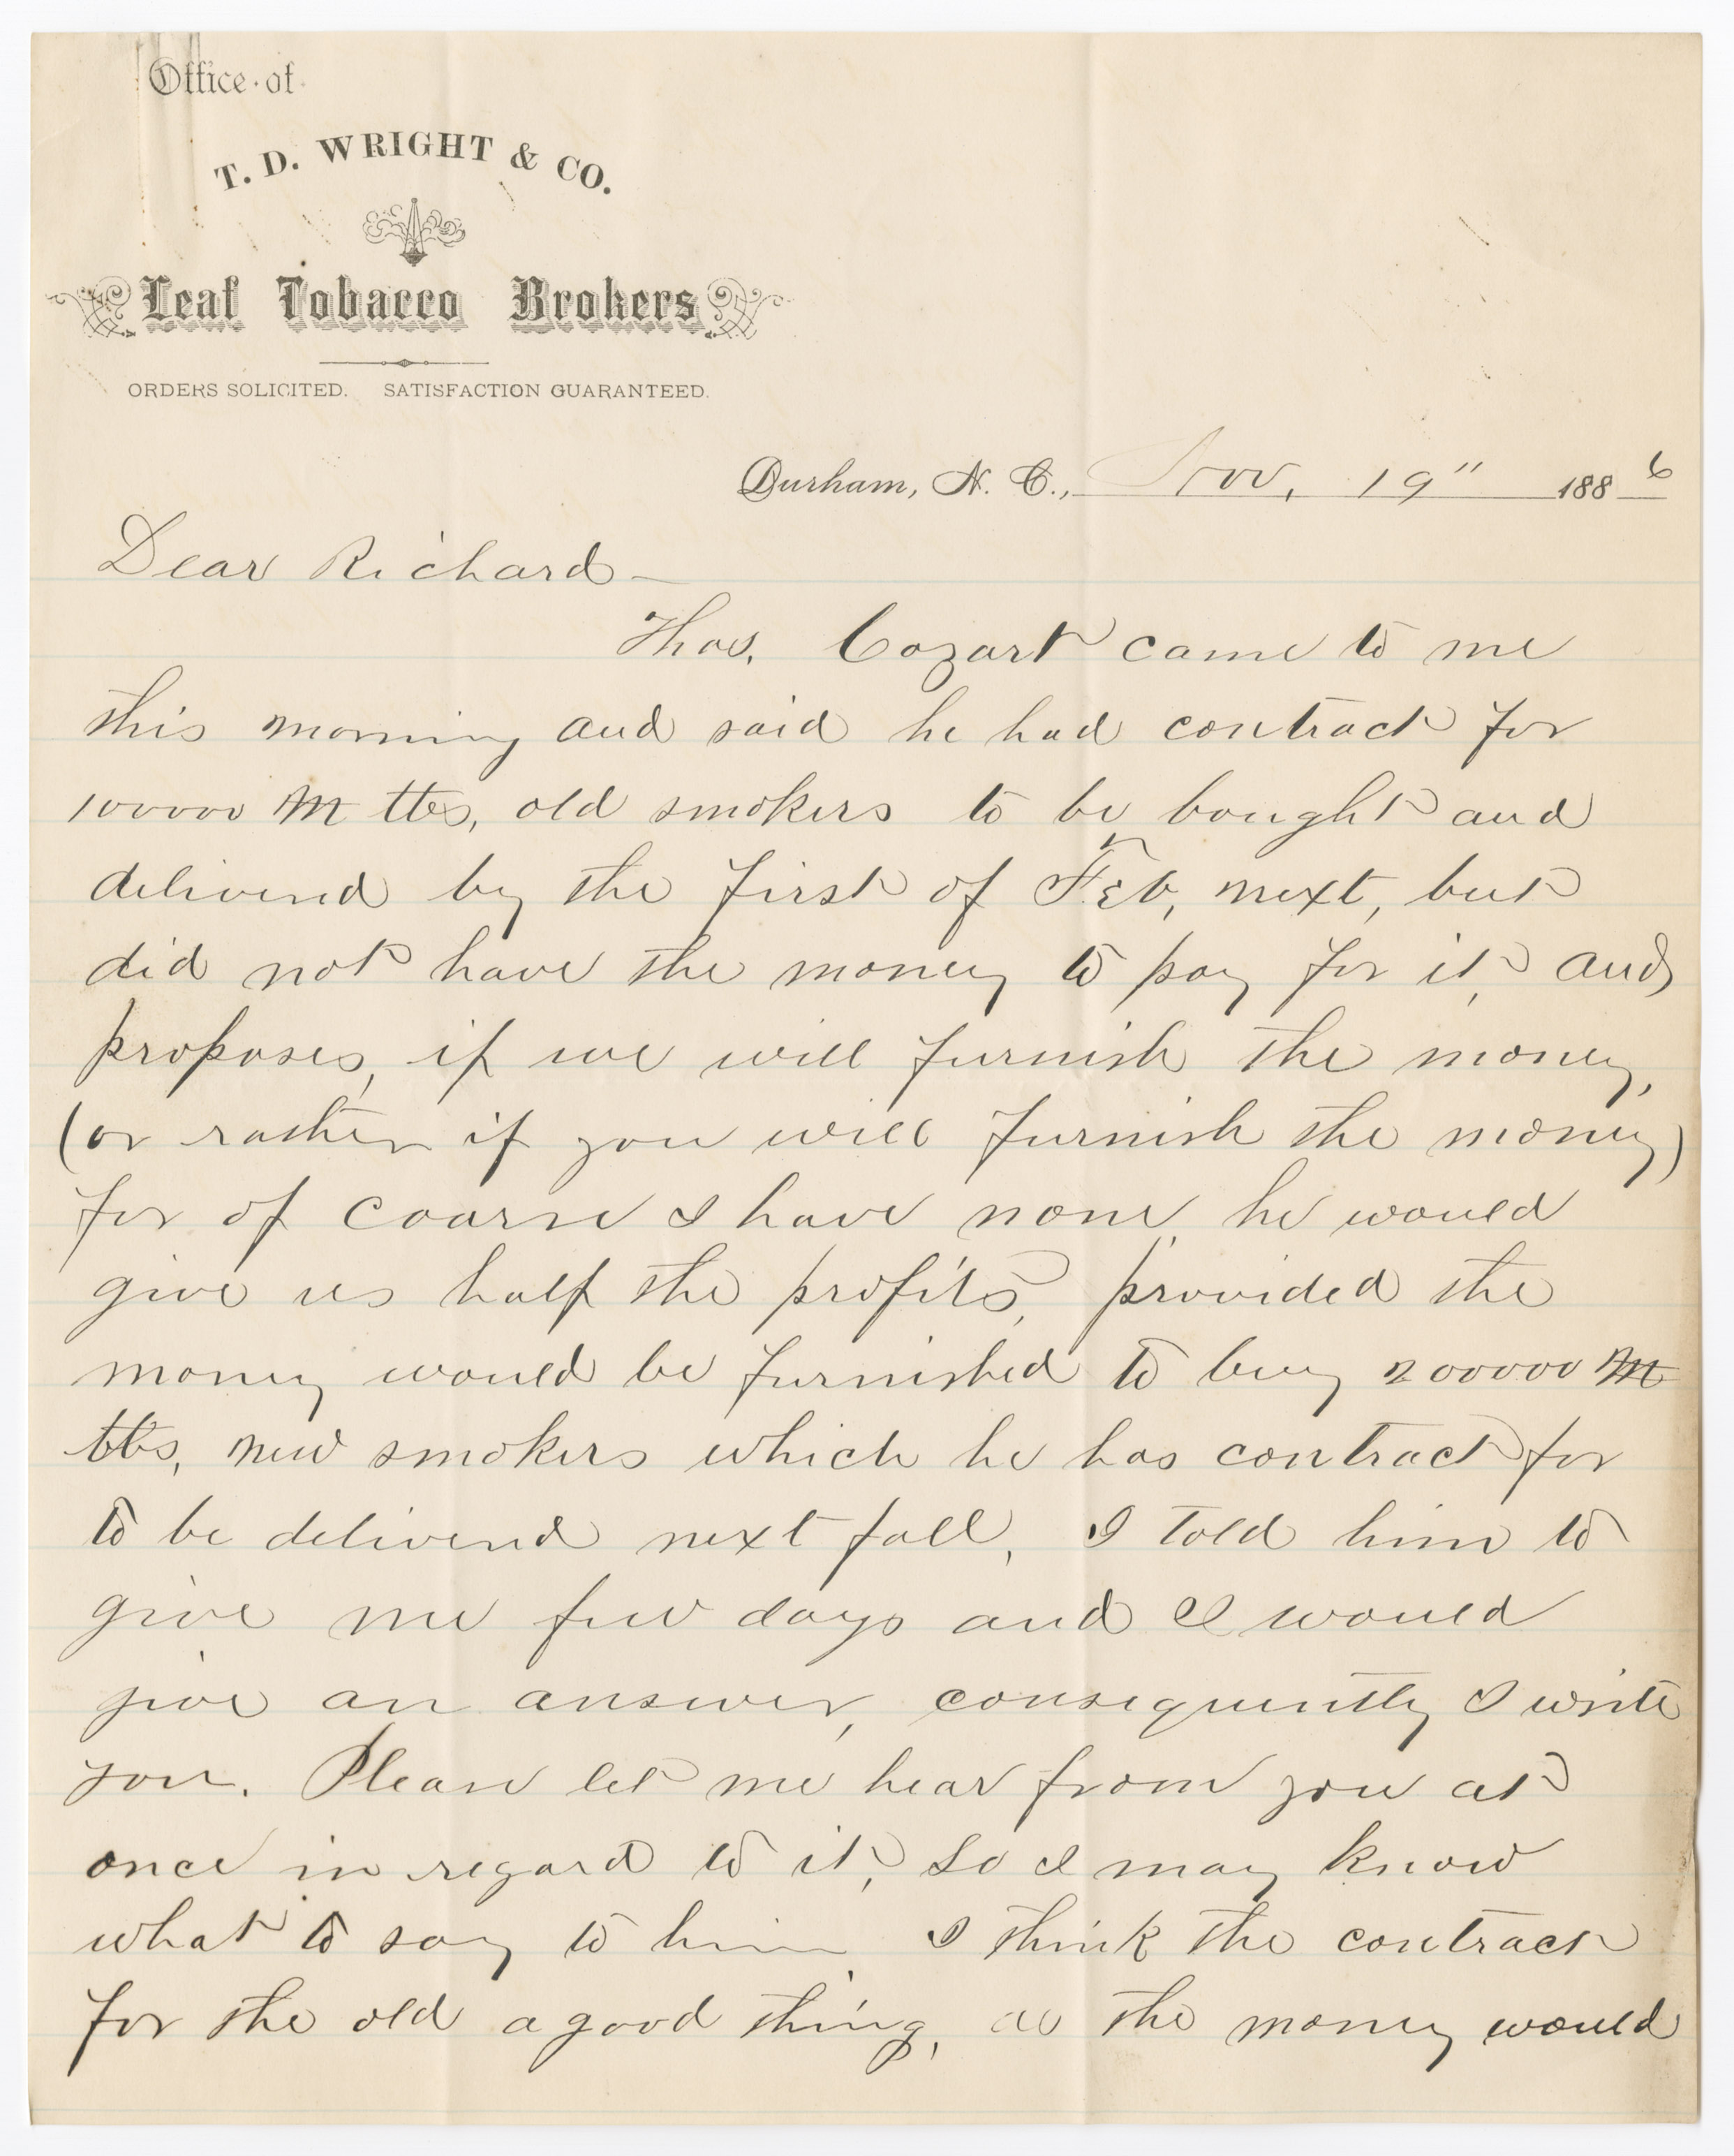 Office of
T. D. WRIGHT & CO.
Leaf Tobacco Brokers
ORDERS SOLICITED. SATISFACTION GUARANTEED.
Durham, N. C., Nov, 19" 1886
Dear Richard—
Thos. Cozart came to me
this morning and said he had contract for
100000 M lbs, old smokers to be bought and
delivered by the first of Feb, next, but
did not have the money to pay for it, and
proposes, if we will furnish the money,
(or rather if you will furnish the money)
for of coarse I have none, he would
give us half the profits, provided the
money would be furnished to buy 200000 M
lbs, new smokers which he has contract for
to be delivered next fall, I told him to
give me few days and I would
give an answer, consequently I write
you. Please let me hear from you at
once in regard to it, so I may know
what to say to him. I think the contract
for the old a good thing, as the money would